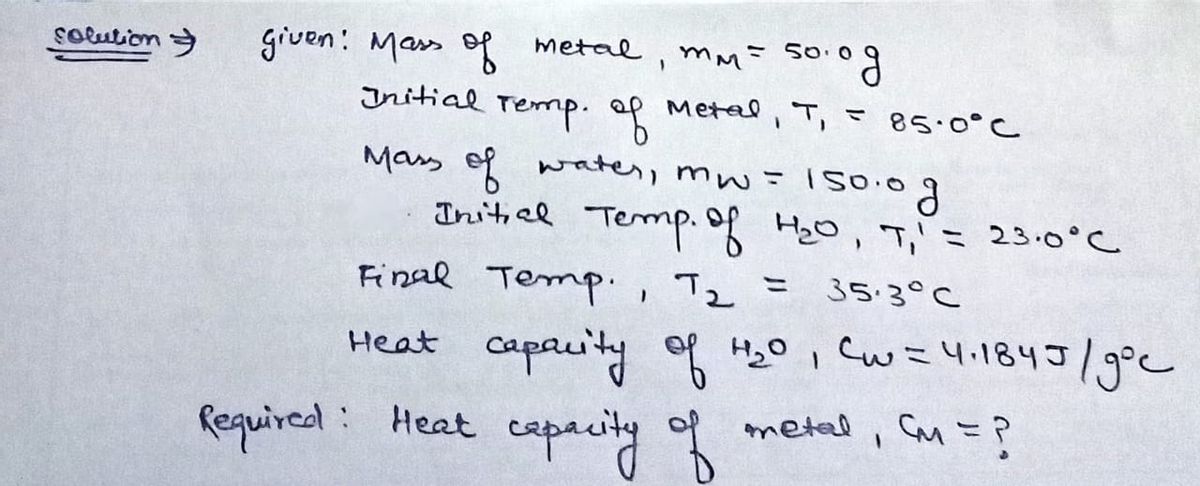 solution ⇒ given: Mass of metal, mM = 50.0g
Initial Temp. of Metal, T₁ = 85.0°C
Mass of water, mw = 150.0 g
Initial Temp. of H₂O, T₁' = 23.0°C
Final Temp., T₂ = 35.3°C
Heat capacity of H₂O, Cw = 4.184J/g°C
Required: Heat capacity of metal, CM = ?